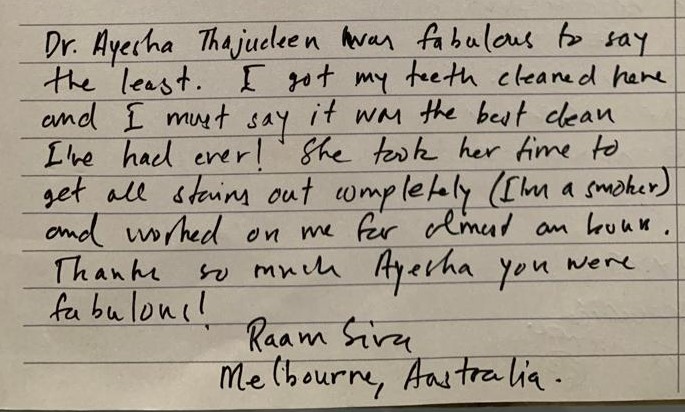 Dr. Ayesha Thajudeen was fabulous to say
the least. I got my teeth cleaned here
and I must say it was the best clean
I've had ever! She took her time to
get all stains out completely (I'm a smoker)
and worked on me for almost an hour.
Thanks so much Ayesha you were
fabulous!
Raam Siva
Melbourne, Australia.